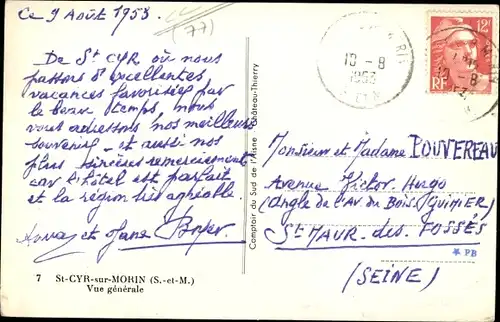 Ce 9 Août 1953.
(77)
De St CYR où nous
passons d'excellentes
vacances favorisées par
le beau temps, nous
vous adressons nos meilleurs
souvenirs - et aussi nos
plus sincères remerciements
car l'hôtel est parfait
et la région très agréable.
et Jane Boyer.
7 St-CYR-sur-MORIN (S.-et-M.)
Vue générale
Comptoir du Sud de l'Aisne - Château-Thierry
10 - 8
1953
12F
RF
Monsieur et Madame POUVEREAU
Avenue Victor Hugo
(angle de l'Av. du Bois. GUIMIER)
St MAUR. des. FOSSÉS
* PB
(SEINE)